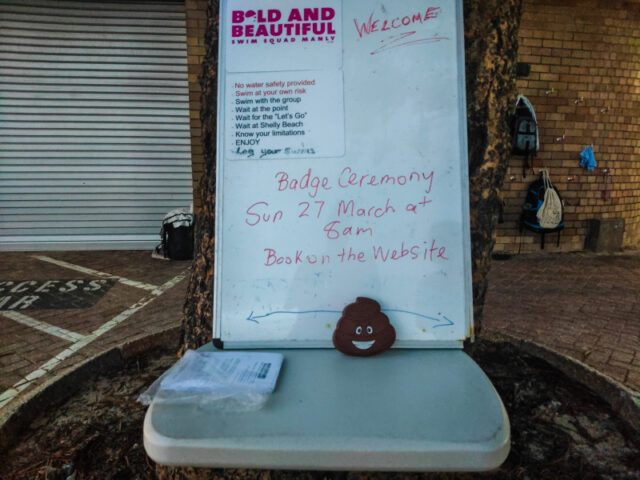 BOLD AND
BEAUTIFUL
SWIM SQUAD MANLY
WELCOME
- No water safety provided
- Swim at your own risk
- Swim with the group
- Wait at the point
- Wait for the "Let's Go"
- Wait at Shelly Beach
- Know your limitations
- ENJOY
- Log your Swims
Badge Ceremony
Sun 27 March at
8am
Book on the Website